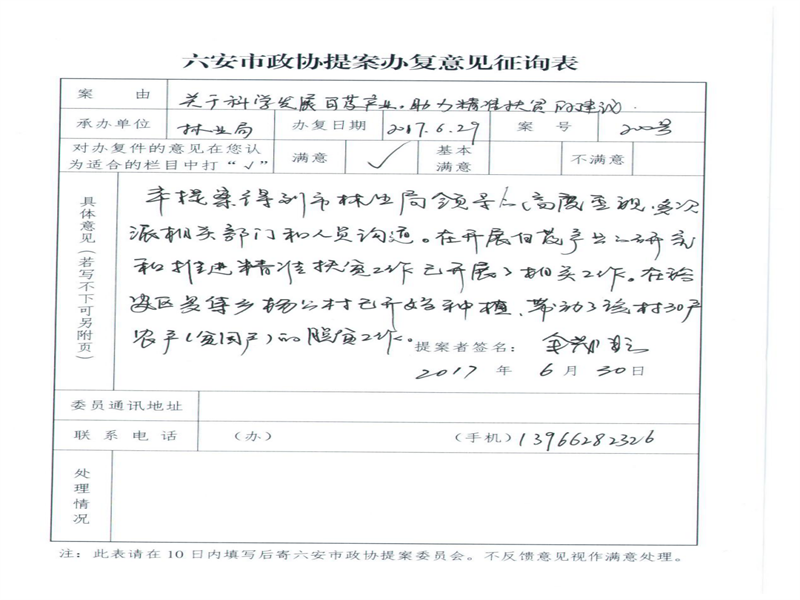 六安市政协提案办复意见征询表
案 由 关于科学发展百药产业,助力精准扶贫的建议.
承办单位 林业局 办复日期 2017.6.29 案 号 200号
对办复件的意见在您认为适合的栏目中打“√” 满意 √ 基本满意 不满意
具体意见(若写不下可另附页)
本提案得到市林业局领导的高度重视,多次
派相关部门和人员沟通。在开展百药产业研究
和推进精准扶贫工作已开展了相关工作。在
安区 乡杨公村已开始种植、带动了该村30户
农户(贫困户)的脱贫工作。
提案者签名:
2017 年 6 月 30 日
委员通讯地址
联 系 电 话 (办) (手机) 13966282326
处理情况
注:此表请在10日内填写后寄六安市政协提案委员会。不反馈意见视作满意处理。